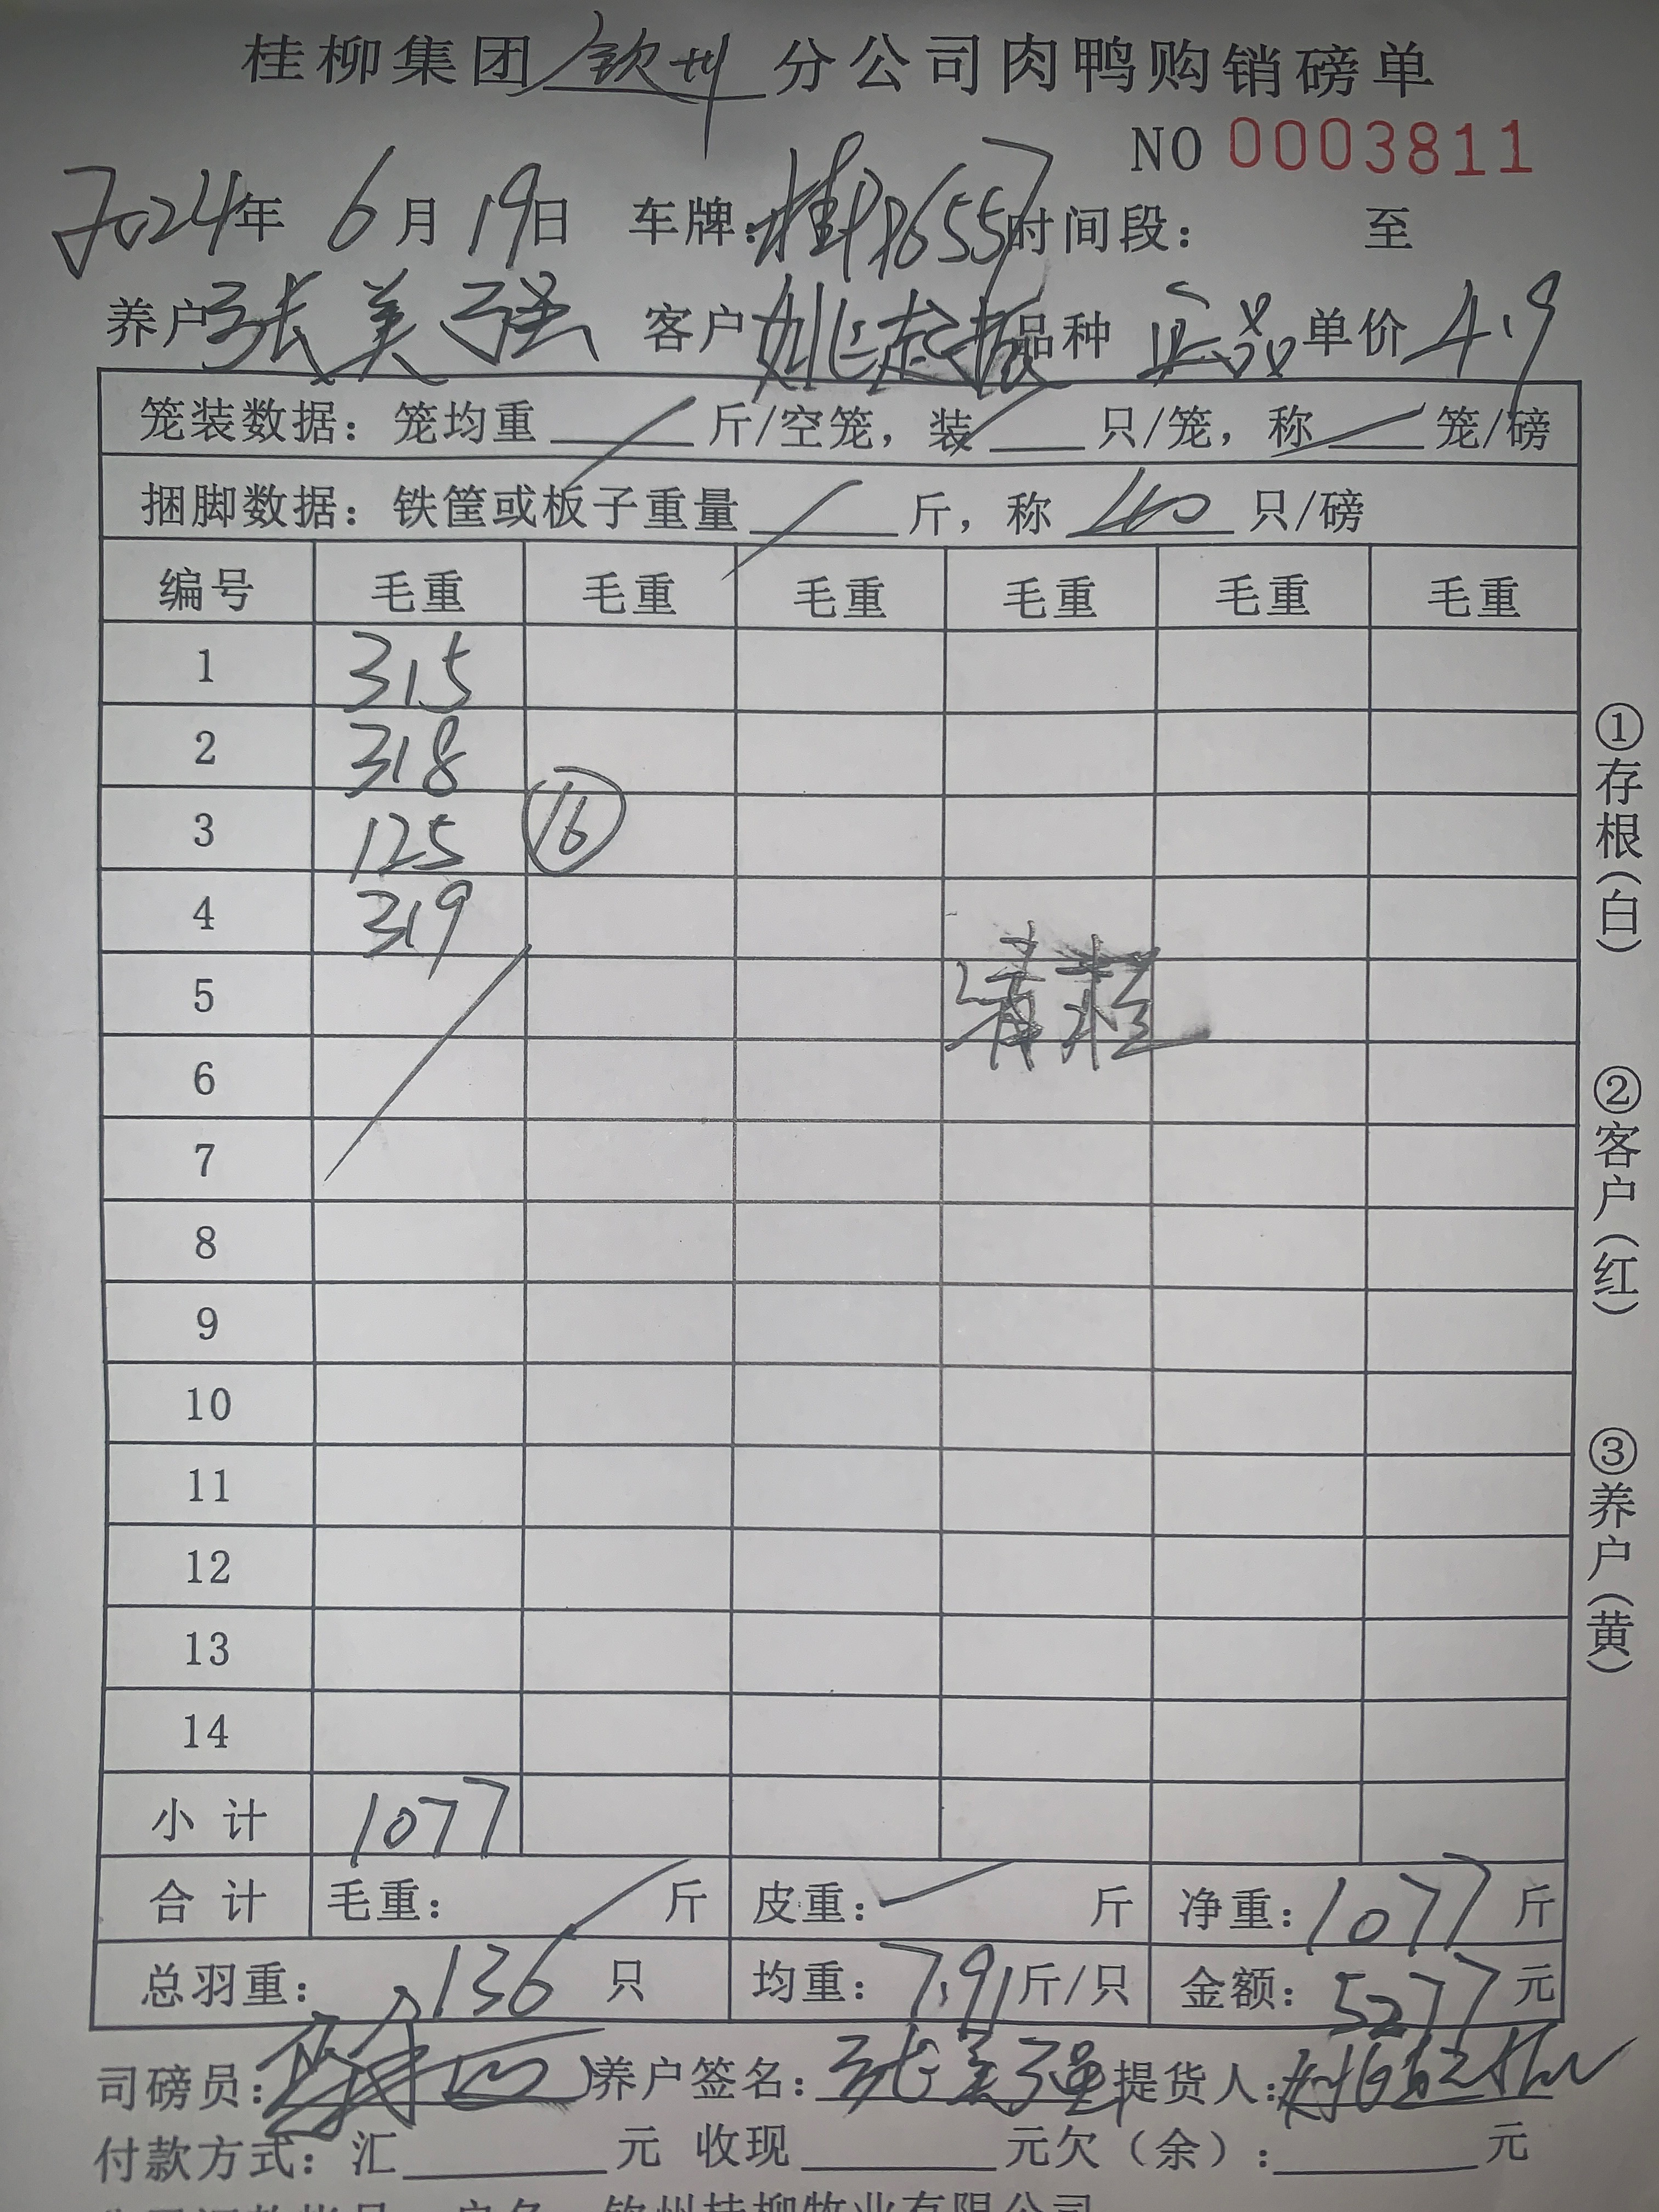 桂柳集团 钦州 分公司肉鸭购销磅单
NO 0003811
2024年 6月 19日 车牌:桂 86557 时间段: 至
养户 张美强 客户 姚起振 品种 正品 单价 4.9
笼装数据:笼均重 斤/空笼,装 只/笼,称 笼/磅
捆脚数据:铁筐或板子重量 斤,称 40 只/磅
编号 毛重 毛重 毛重 毛重 毛重 毛重
1 315
2 318
3 125 ⑯
4 319
5 清栏
6
7
8
9
10
11
12
13
14
小计 1077
合计 毛重: 斤 皮重: 斤 净重:1077斤
总羽重: 136 只 均重:7.91斤/只 金额:5277元
司磅员: 养户签名:张美强 提货人:姚起振
付款方式:汇 元 收现 元欠(余): 元
钦州桂柳牧业有限公司
①存根(白)
②客户(红)
③养户(黄)